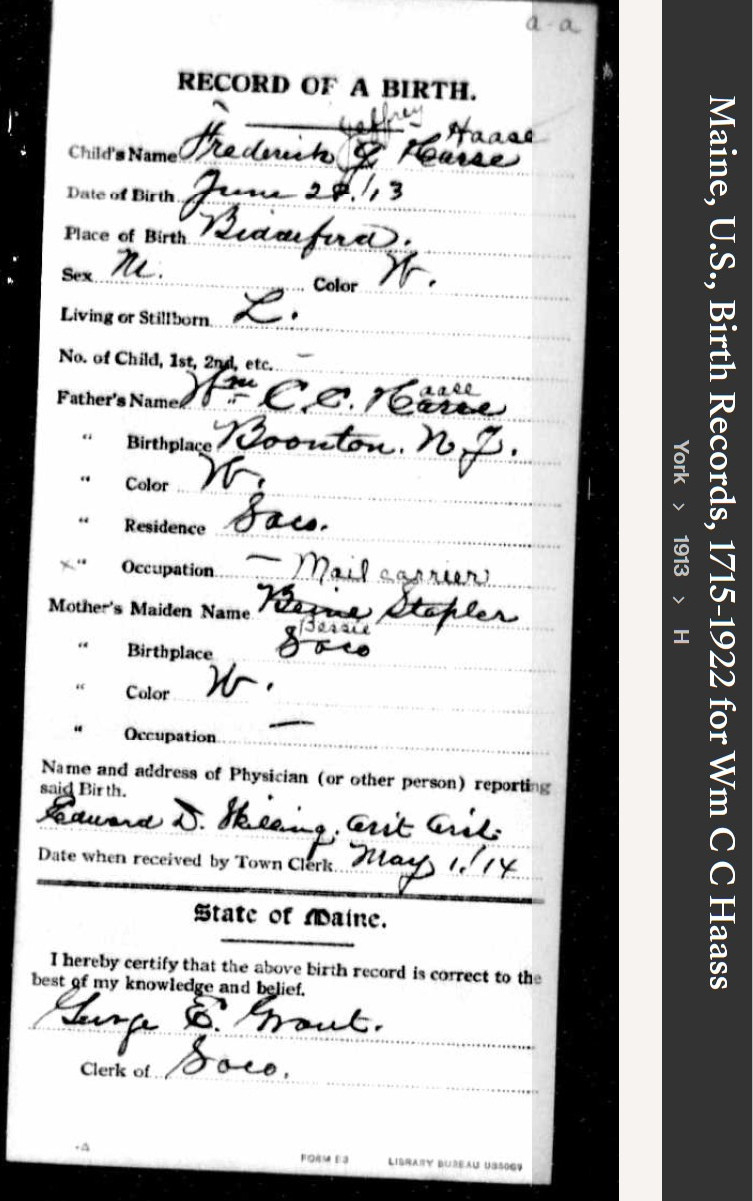 a-a
RECORD OF A BIRTH.
Jeffrey Haase
Child's Name Frederick J Harse
Date of Birth June 28, '13
Place of Birth Biddeford.
Sex M. Color W.
Living or Stillborn L.
No. of Child, 1st, 2nd, etc. –
aase
Father's Name Wm C. C. Harse
" Birthplace Boonton. N. J.
" Color W.
" Residence Saco.
x " Occupation — Mail carrier
Mother's Maiden Name Stapler
Bessie
" Birthplace Saco
" Color W.
" Occupation —
Name and address of Physician (or other person) reporting
said Birth.
Edward D.
Date when received by Town Clerk May 1, '14
State of Maine.
I hereby certify that the above birth record is correct to the
best of my knowledge and belief.
George E. Grant.
Clerk of Saco.
FORM E3 LIBRARY BUREAU
Maine, U.S., Birth Records, 1715-1922 for Wm C C Haass
York > 1913 > H